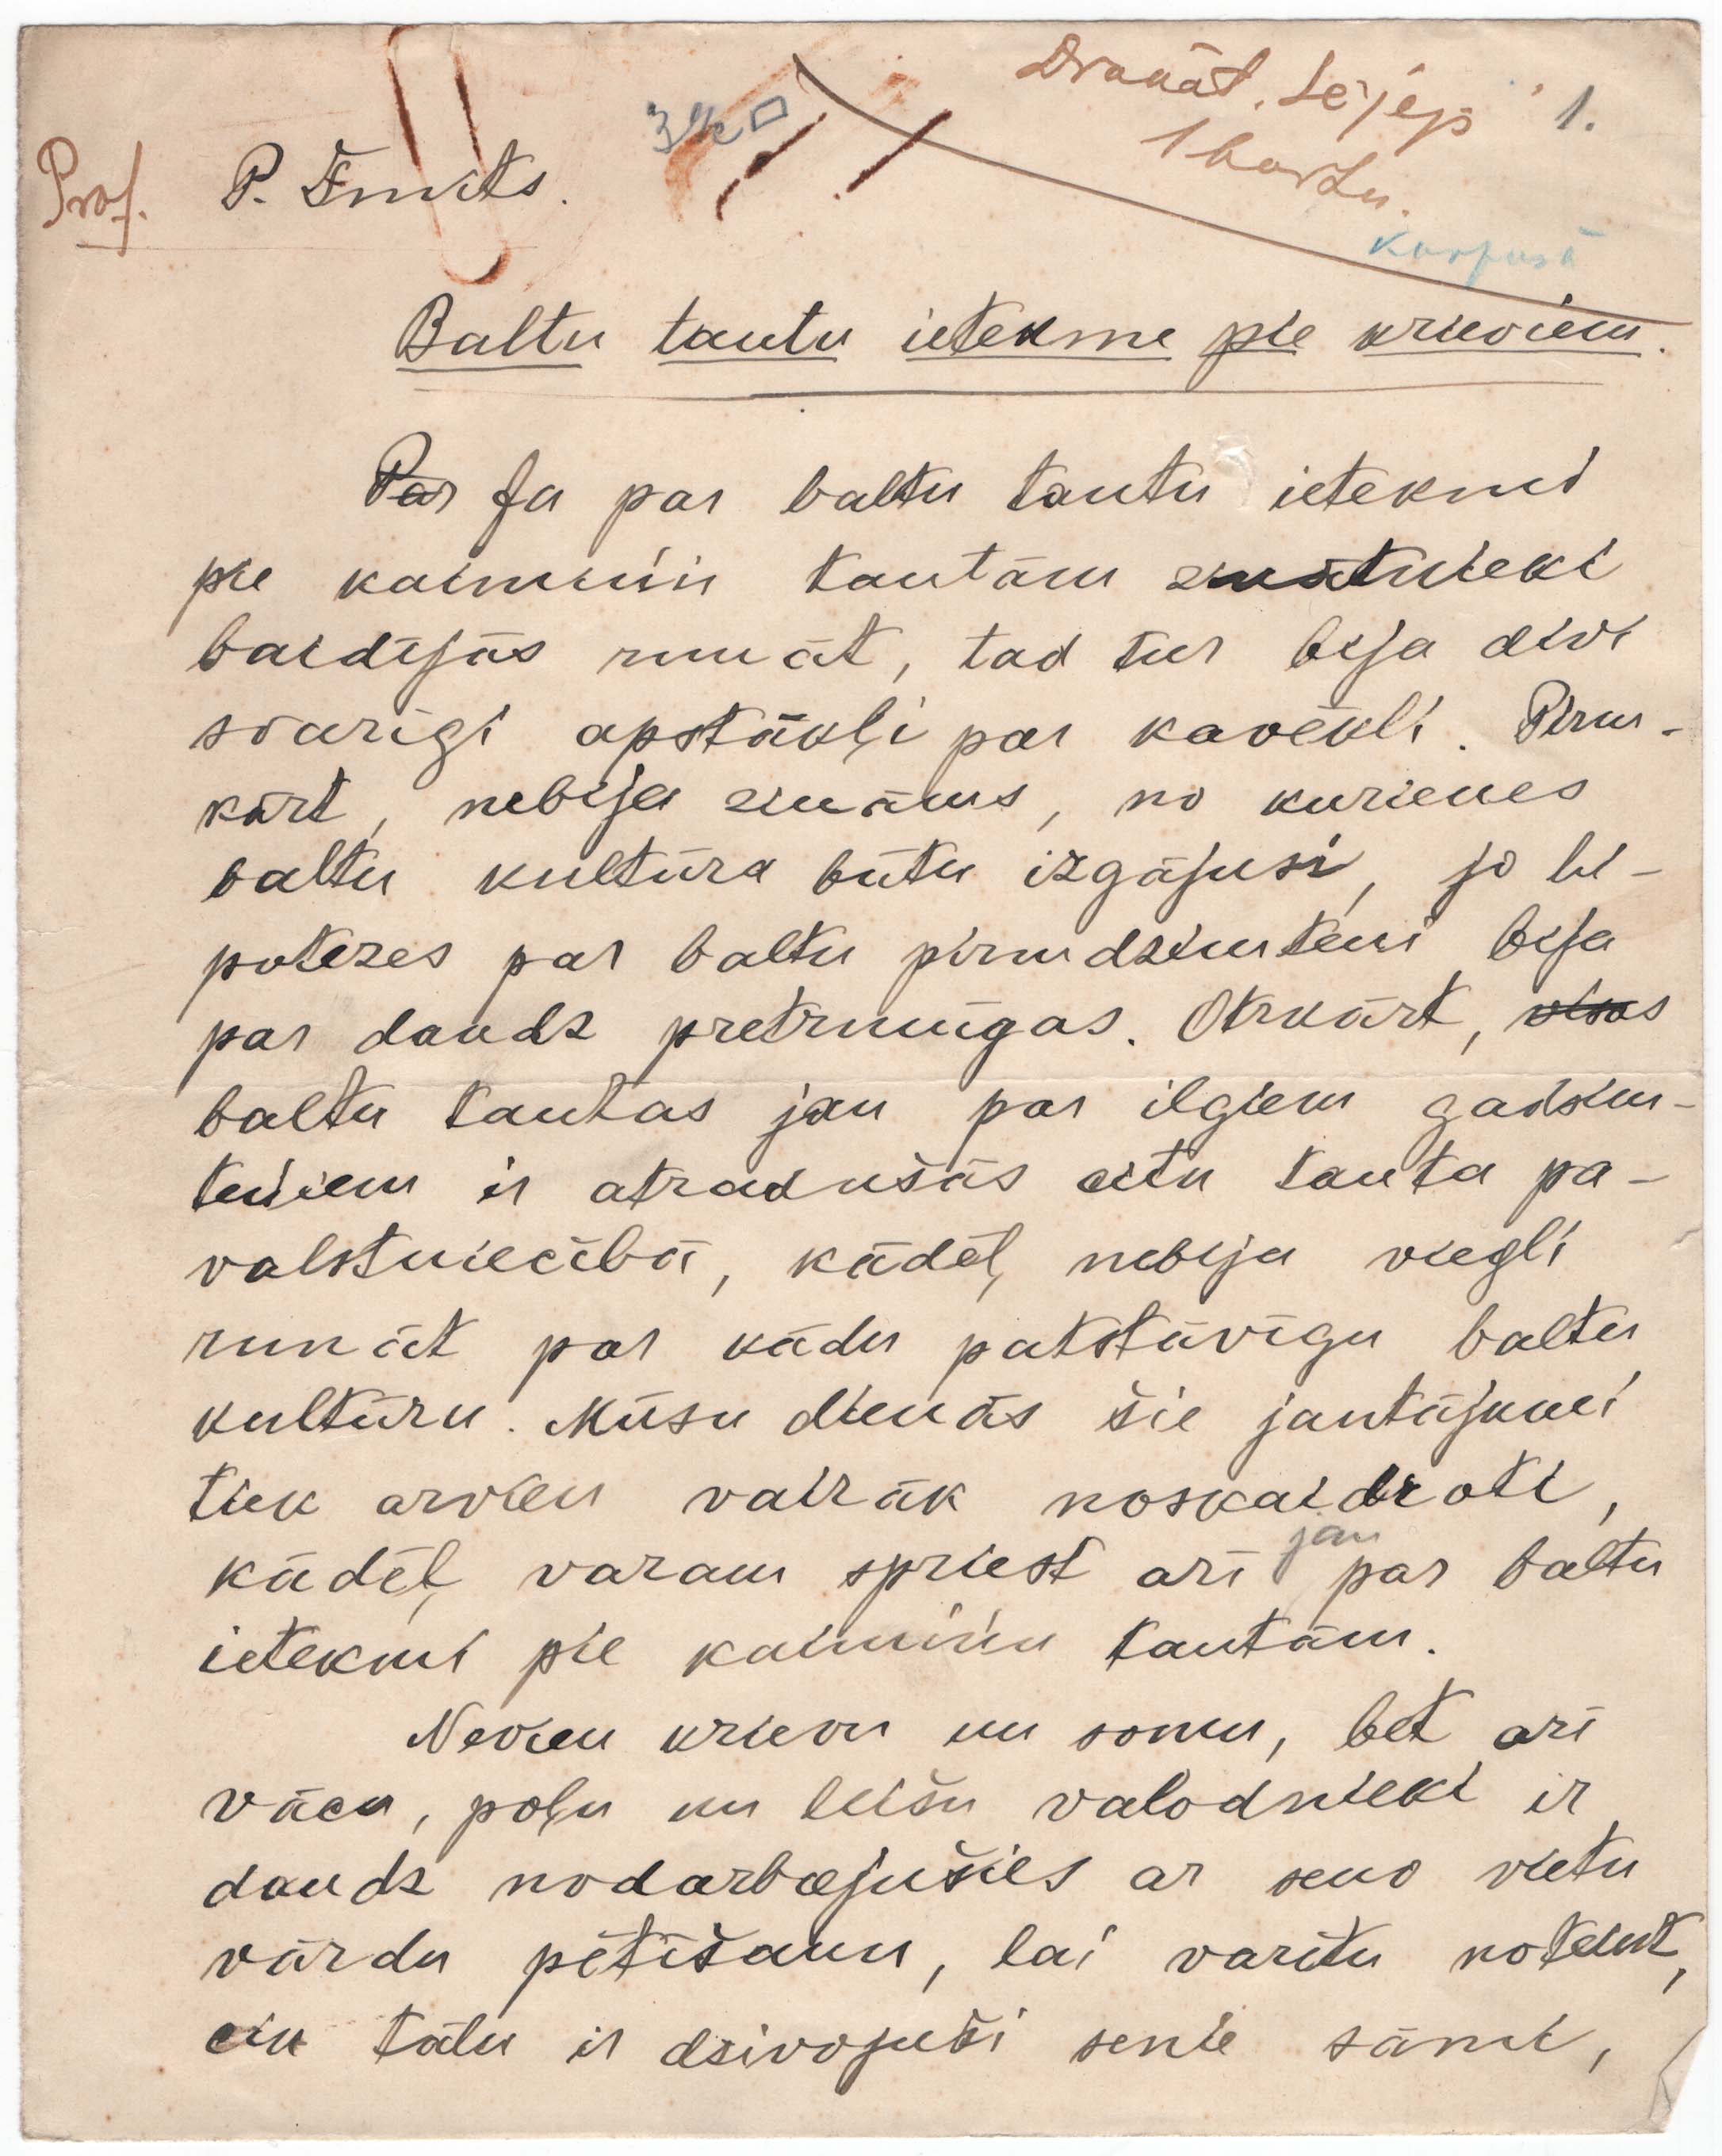 1.
Prof. P. Šmits.
korpusā
Baltu tautu ietekme pie krieviem.
Par Ja par baltu tautu ietekmi
pie kaimiņu tautām zinātnieki
baidījās runāt, tad tur bija divi
svarīgi apstākļi par kavēkli. Pirm-
kārt, nebija zināms, no kurienes
baltu kultūra būtu izgājusi, jo hi-
potezes par baltu pirmdzimteni bija
par daudz pretrunīgas. Otrkārt, visas
baltu tautas jau par ilgiem gadsim-
teņiem ir atradušās citu tautu pa-
valstniecībā, kādēļ nebija viegli
runāt par kādu patstāvīgu baltu
kultūru. Mūsu dienās šie jautājumi
tiek arvien vairāk noskaidroti,
kādēļ varam spriest arī jau par baltu
ietekmi pie kaimiņu tautām.
Nevien krievu un somu, bet arī
vācu, poļu un leišu valodnieki ir
daudz nodarbojušies ar seno vietu
vārdu pētīšanu, lai varētu noteikt,
cik tālu ir dzīvojuši senie sāmi,